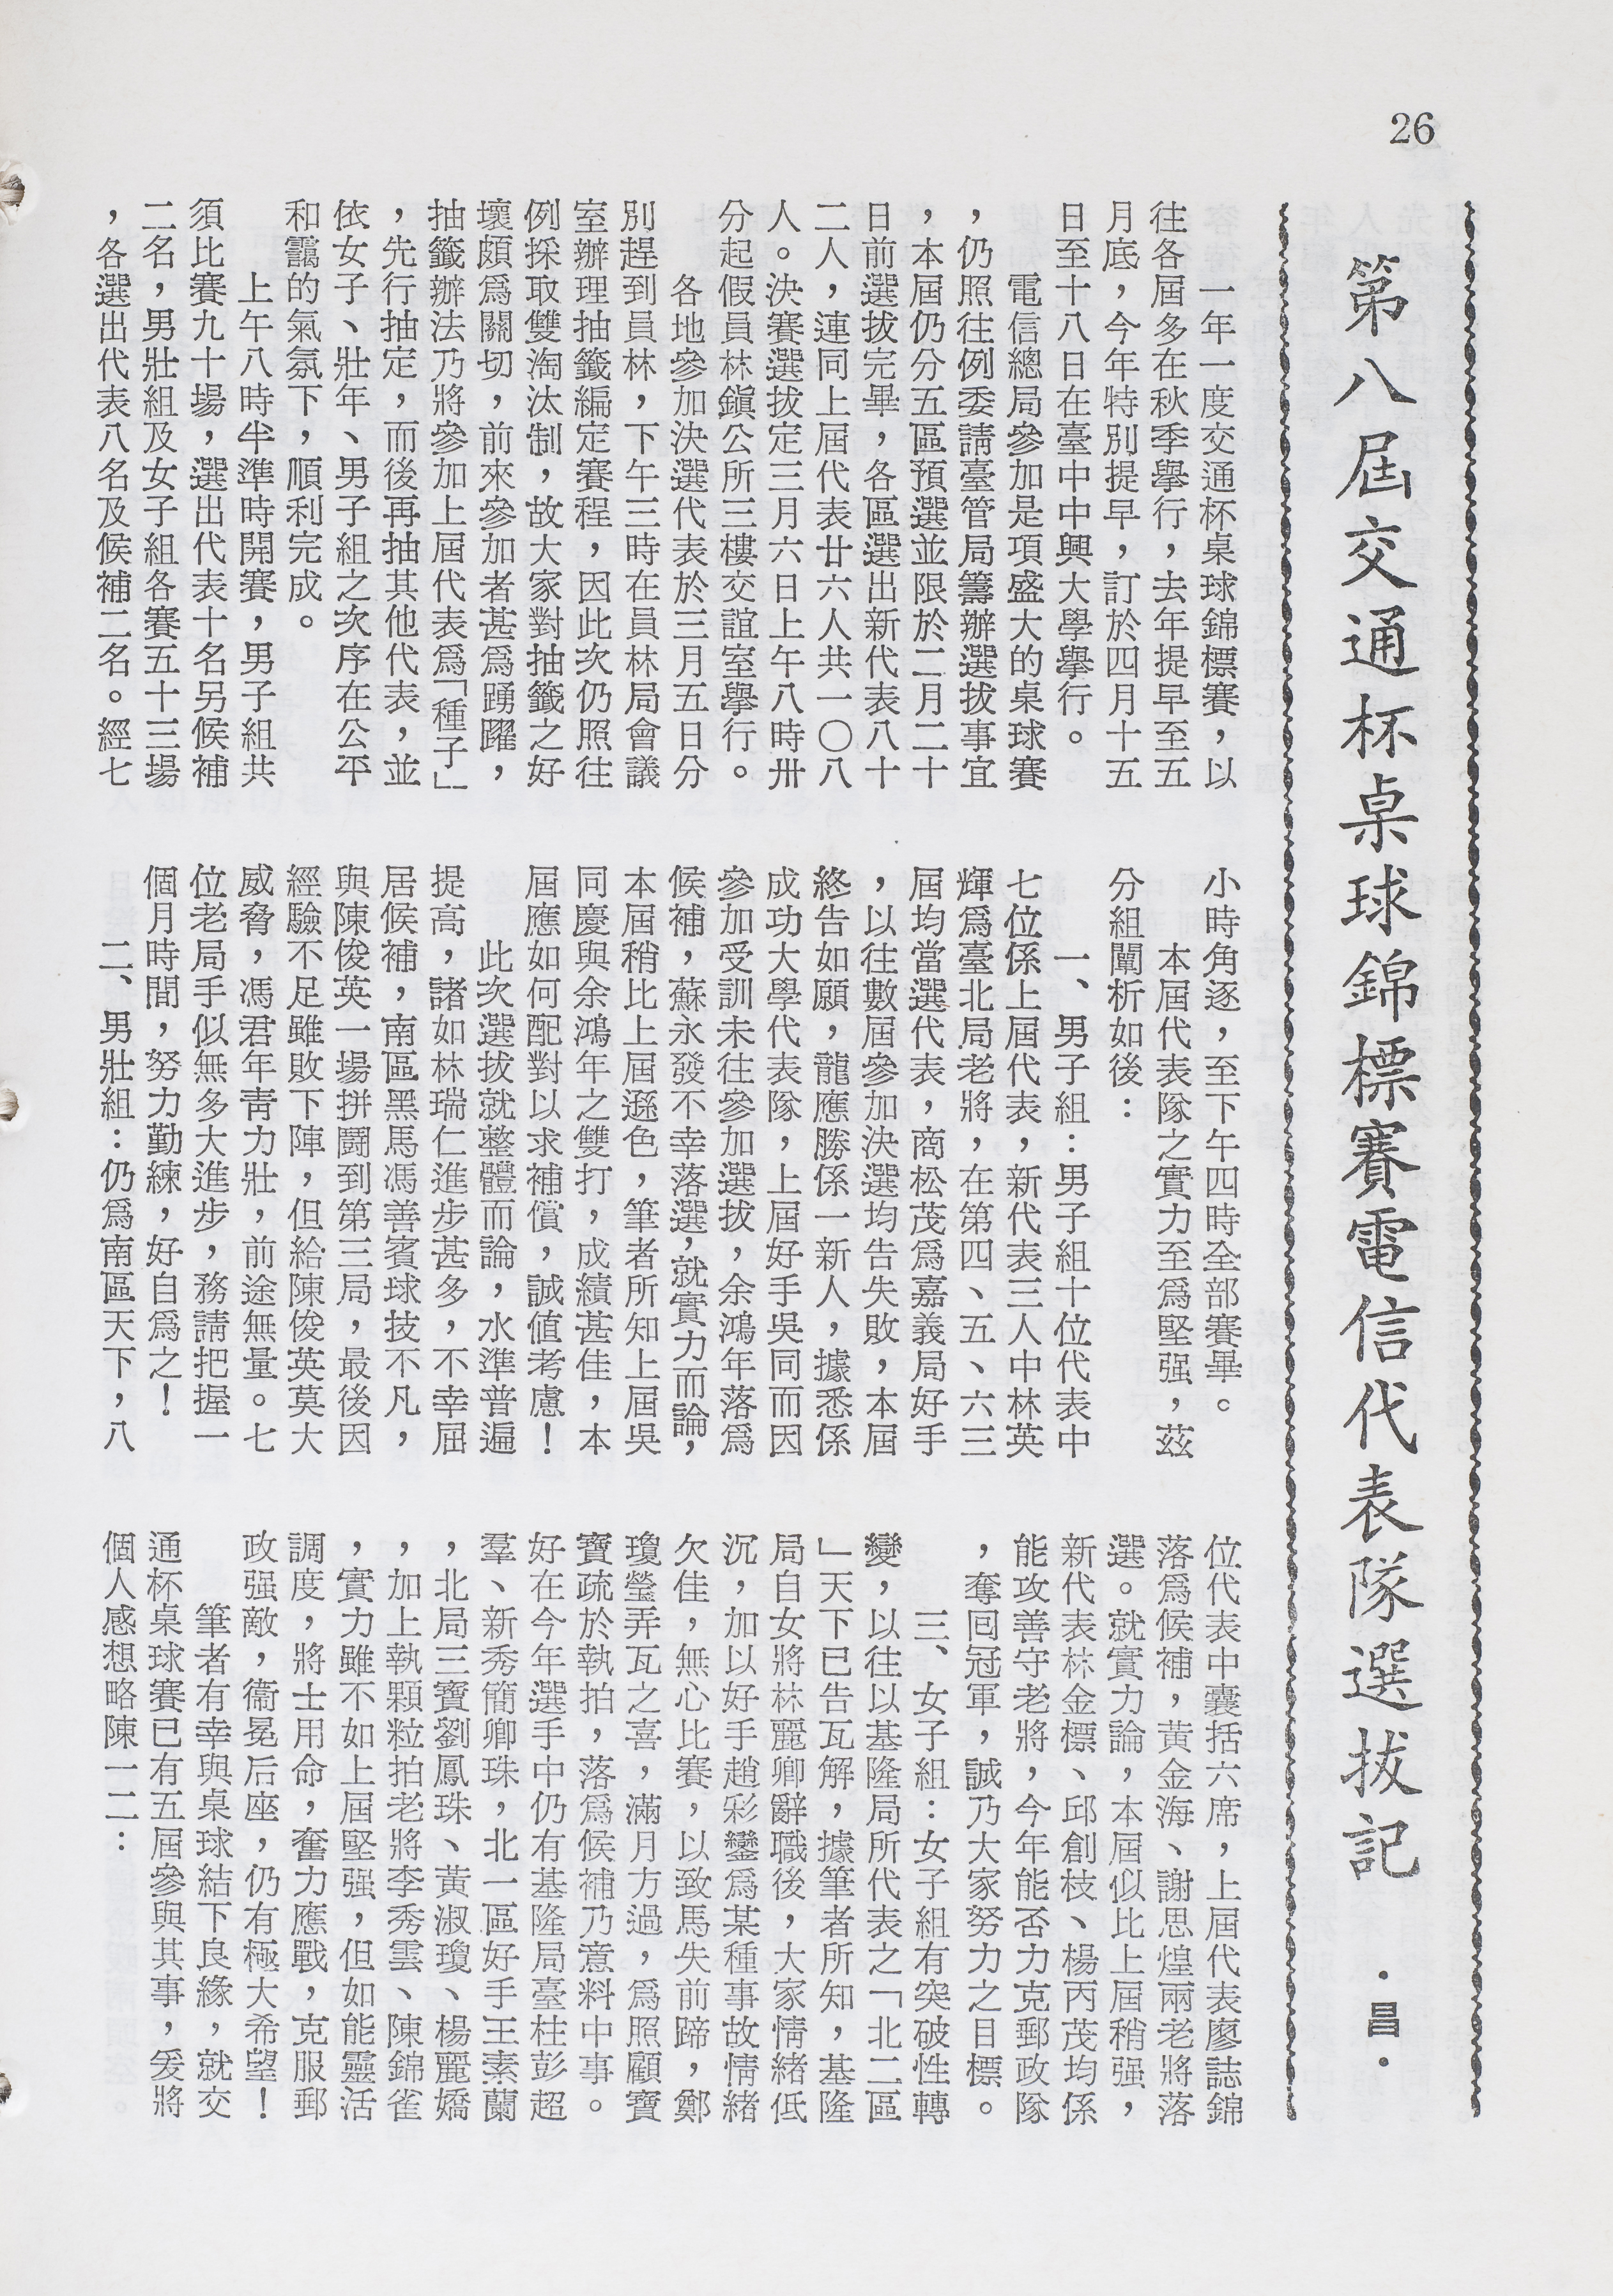 26
第八屆交通杯桌球錦標賽電信代表隊選拔記
·昌·
一年一度交通杯桌球錦標賽，以
往各屆多在秋季舉行，去年提早至五
月底，今年特別提早，訂於四月十五
日至十八日在臺中中興大學舉行。
電信總局參加是項盛大的桌球賽
，仍照往例委請臺管局籌辦選拔事宜
，本屆仍分五區預選並限於二月二十
日前選拔完畢，各區選出新代表八十
二人，連同上屆代表廿六人共一〇八
人。決賽選拔定三月六日上午八時卅
分起假員林鎭公所三樓交誼室舉行。
各地參加決選代表於三月五日分
別趕到員林，下午三時在員林局會議
室辦理抽籤編定賽程，因此次仍照往
例採取雙淘汰制，故大家對抽籤之好
壞頗爲關切，前來參加者甚爲踴躍，
抽籤辦法乃將參加上屆代表爲「種子」
，先行抽定，而後再抽其他代表，並
依女子、壯年、男子組之次序在公平
和靄的氣氛下，順利完成。
上午八時半準時開賽，男子組共
須比賽九十場，選出代表十名另候補
二名，男壯組及女子組各賽五十三場
，各選出代表八名及候補二名。經七
小時角逐，至下午四時全部賽畢。
本屆代表隊之實力至爲堅强，茲
分組闡析如後：
一、男子組：男子組十位代表中
七位係上屆代表，新代表三人中林英
輝爲臺北局老將，在第四、五、六三
屆均當選代表，商松茂爲嘉義局好手
，以往數屆參加決選均告失敗，本屆
終告如願，龍應勝係一新人，據悉係
成功大學代表隊，上屆好手吳同而因
參加受訓未往參加選拔，余鴻年落爲
候補，蘇永發不幸落選，就實力而論，
本屆稍比上屆遜色，筆者所知上屆吳
同慶與余鴻年之雙打，成績甚佳，本
屆應如何配對以求補償，誠值考慮！
此次選拔就整體而論，水準普遍
提高，諸如林瑞仁進步甚多，不幸屈
居候補，南區黑馬馮善賓球技不凡，
與陳俊英一場拼鬪到第三局，最後因
經驗不足雖敗下陣，但給陳俊英莫大
威脅，馮君年青力壯，前途無量。七
位老局手似無多大進步，務請把握一
個月時間，努力勤練，好自爲之！
二、男壯組：仍爲南區天下，八
位代表中囊括六席，上屆代表廖誌錦
落爲候補，黃金海、謝思煌兩老將落
選。就實力論，本屆似比上屆稍强，
新代表林金標、邱創枝、楊丙茂均係
能攻善守老將，今年能否力克郵政隊
，奪回冠軍，誠乃大家努力之目標。
三、女子組：女子組有突破性轉
變，以往以基隆局所代表之「北二區
」天下已告瓦解，據筆者所知，基隆
局自女將林麗卿辭職後，大家情緒低
沉，加以好手趙彩鑾爲某種事故情緒
欠佳，無心比賽，以致馬失前蹄，鄭
瓊瑩弄瓦之喜，滿月方過，爲照顧寶
寶疏於執拍，落爲候補乃意料中事。
好在今年選手中仍有基隆局臺柱彭超
羣、新秀簡卿珠，北一區好手王素蘭
，北局三寶劉鳳珠、黃淑瓊、楊麗嬌
，加上執顆粒拍老將李秀雲、陳錦雀
，實力雖不如上屆堅强，但如能靈活
調度，將士用命，奮力應戰，克服郵
政强敵，衞冕后座，仍有極大希望！
筆者有幸與桌球結下良緣，就交
通杯桌球賽已有五屆參與其事，爰將
個人感想略陳一二：